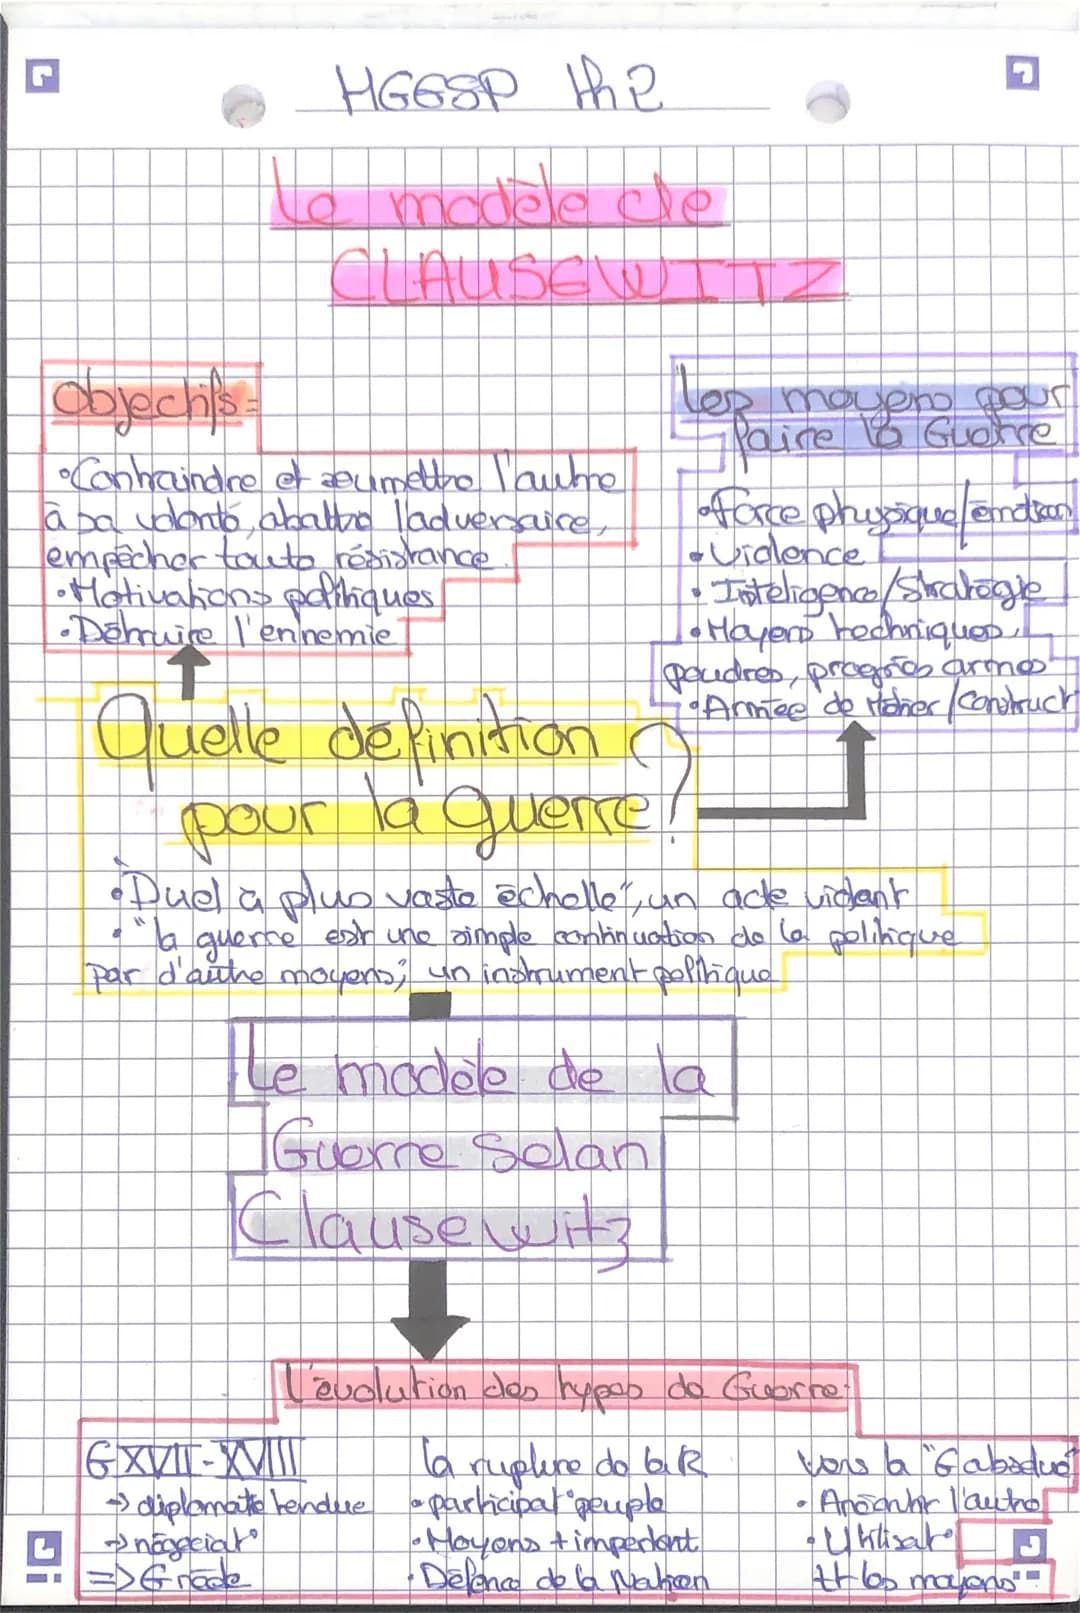 HGGSP th2
Le modèle de
CLAUSEWITZ
Objectifs:
•Contraindre et soumettre l'autre
à sa volonté, abattre l'adversaire,
empêcher toute résistance.
•Motivations politiques
•Détruire l'ennemie
Les moyens pour
faire la Guerre
•force physique/émotion
•Violence
•Inteligence/Stratégie
•Moyens techniques,
poudres, progrès armes
•Armée de Métier/Construct
Quelle définition
pour la guerre?
•"Duel à plus vaste échelle", un acte violent
•"la guerre est une simple continuation de la politique
par d'autre moyens", un instrument politique
Le modèle de la
Guerre Selon
Clausewitz
L'évolution des types de Guerre
G XVII-XVIII
→ diplomatie tendue
→ négociat°
=> G
la rupture de la R
•participat° peuple
•Moyens + important
•Défence de la Nation
Vers la "G absolue"
•Anéantir l'autre
•Utilisat°
tt les moyens